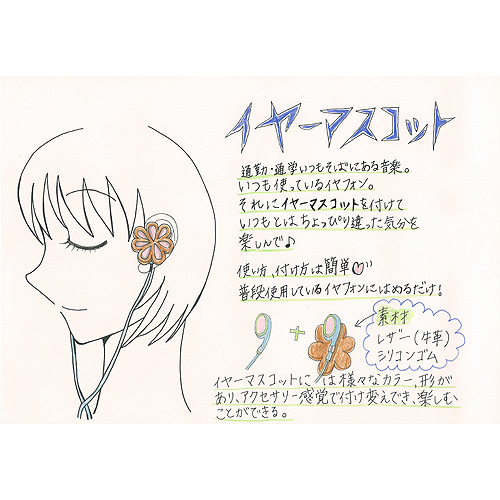 イヤーマスコット
通勤・通学いつもそばにある音楽。
いつも使っているイヤフォン。
それにイヤーマスコットを付けて
いつもとはちょっぴり違った気分を
楽しんで♪
使い方、付け方は簡単♡
普段使用しているイヤフォンにはめるだけ!
+
素材
レザー(牛革)
シリコンゴム
イヤーマスコットには様々なカラー、形が
あり、アクセサリー感覚で付け変えでき、楽しむ
ことができる。